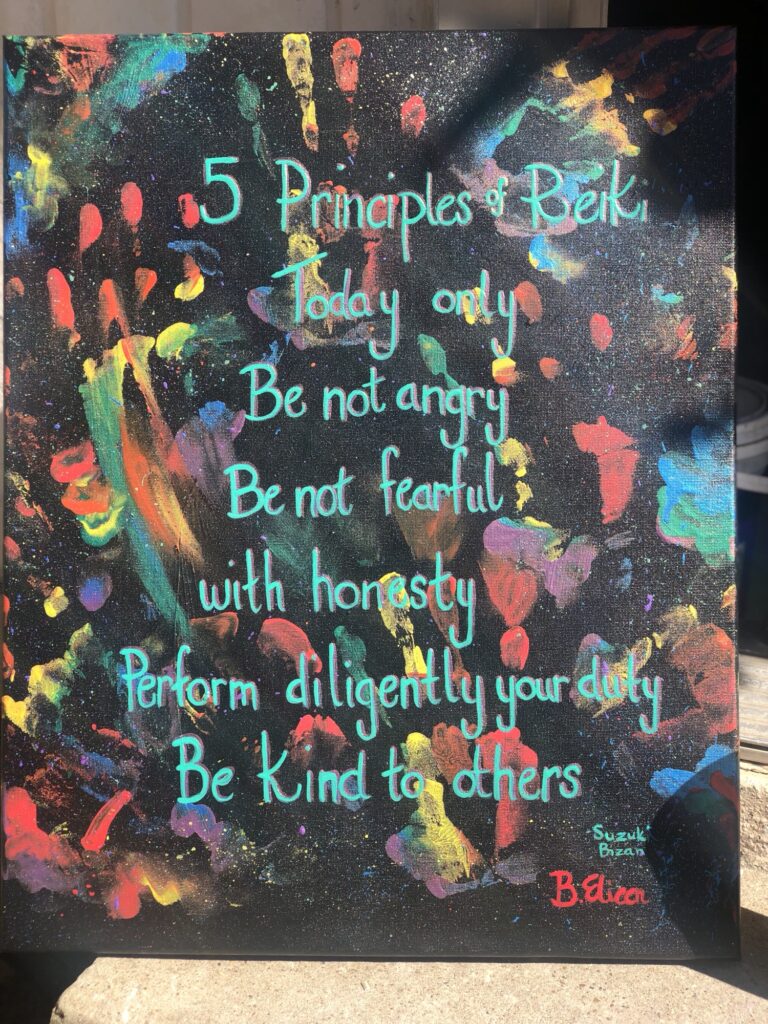 5 Principles of Reiki
Today only
Be not angry
Be not fearful
with honesty
Perform diligently your duty
Be kind to others
Suzuki
Bizan
B. Eileen